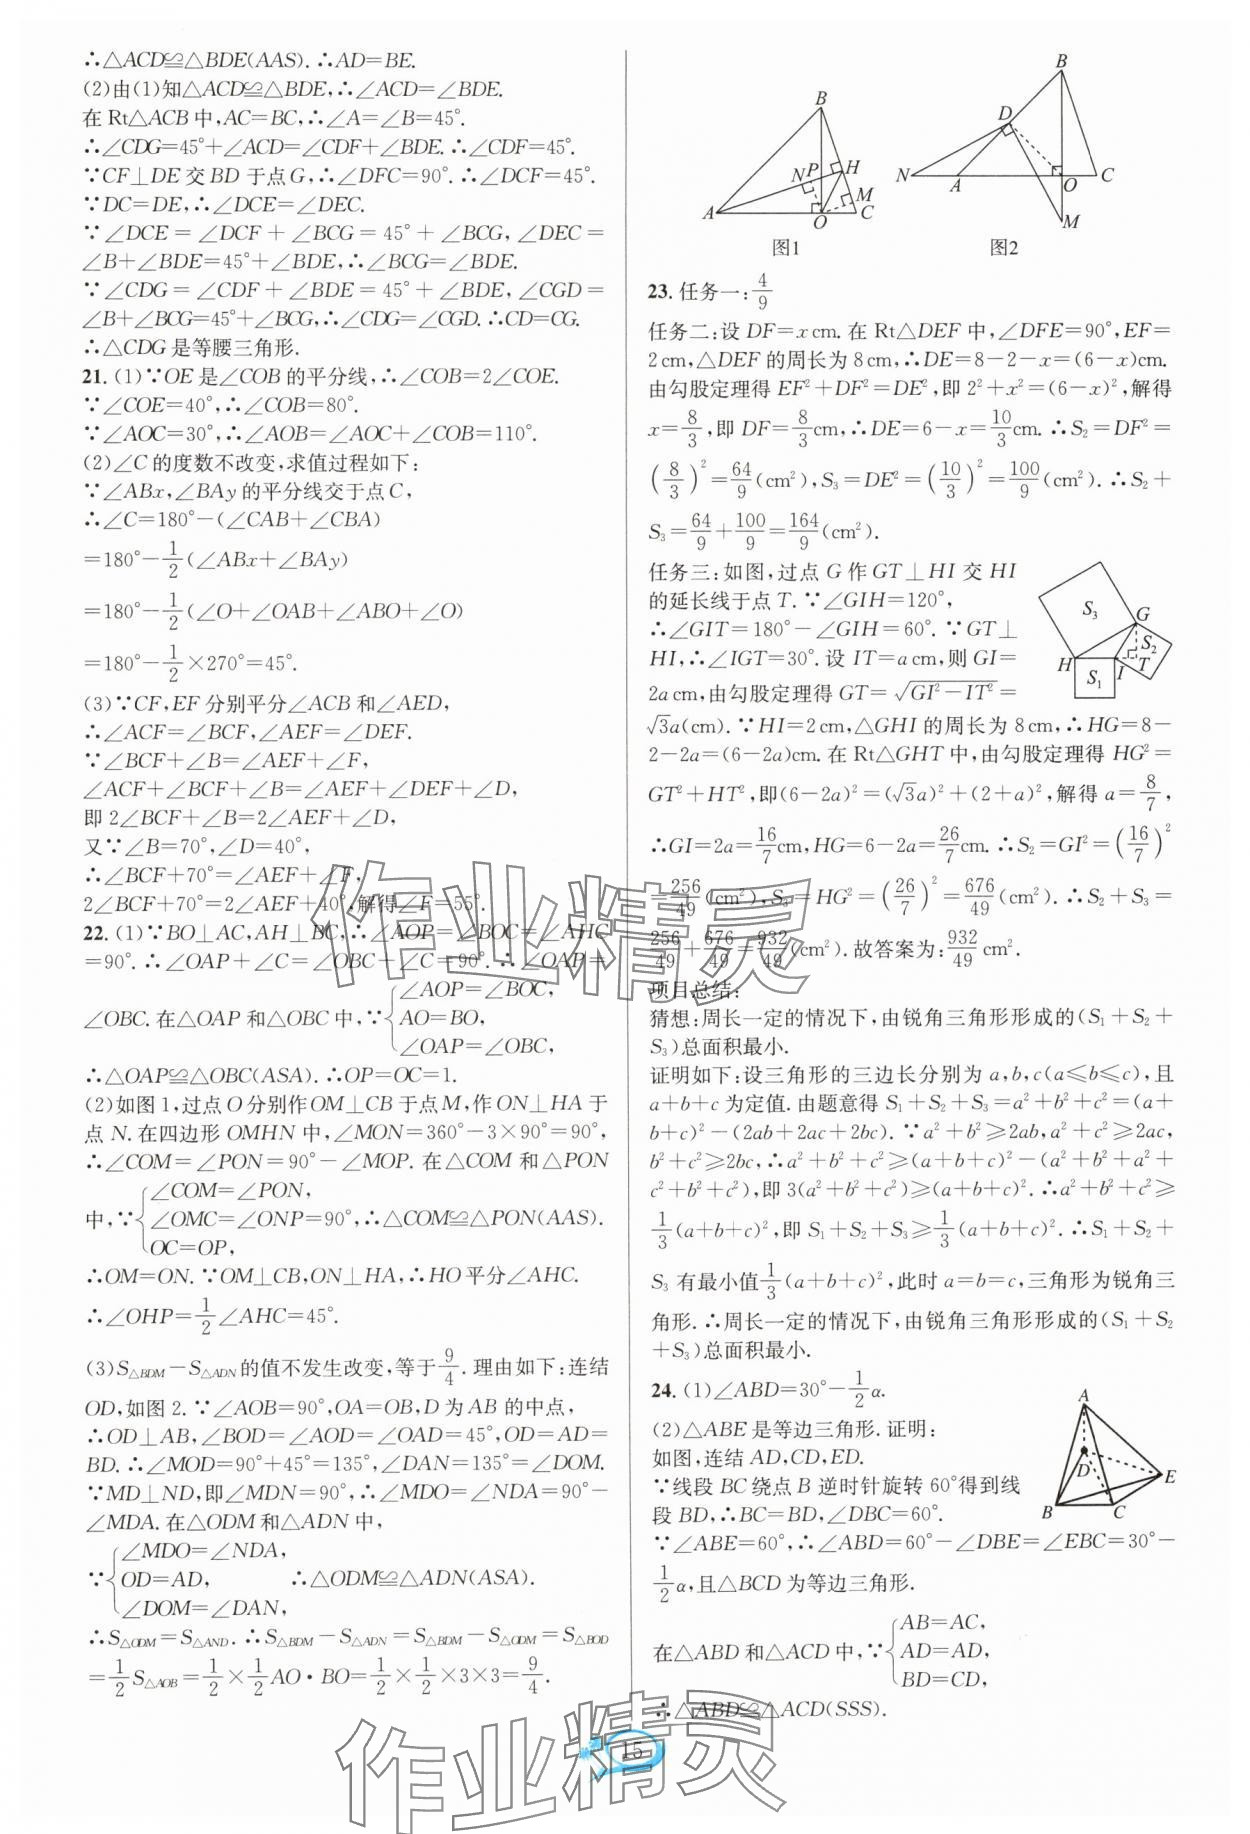 ∴△ACD≌△BDE(AAS). ∴AD=BE.
(2)由(1)知△ACD≌△BDE,∴∠ACD=∠BDE.
在 Rt△ACB 中,AC=BC,∴∠A=∠B=45°.
∴∠CDG=45°+∠ACD=∠CDF+∠BDE. ∴∠CDF=45°.
∵CF⊥DE 交 BD 于点 G,∴∠DFC=90°. ∴∠DCF=45°.
∵DC=DE,∴∠DCE=∠DEC.
∵∠DCE=∠DCF+∠BCG=45°+∠BCG,∠DEC=
∠B+∠BDE=45°+∠BDE,∴∠BCG=∠BDE.
∵∠CDG=∠CDF+∠BDE=45°+∠BDE,∠CGD=
∠B+∠BCG=45°+∠BCG,∴∠CDG=∠CGD. ∴CD=CG.
∴△CDG 是等腰三角形.
21. (1)∵OE 是∠COB 的平分线,∴∠COB=2∠COE.
∵∠COE=40°,∴∠COB=80°.
∵∠AOC=30°,∴∠AOB=∠AOC+∠COB=110°.
(2)∠C 的度数不改变,求值过程如下:
∵∠ABx,∠BAy 的平分线交于点 C,
∴∠C=180°-(∠CAB+∠CBA)
=180°-1/2(∠ABx+∠BAy)
=180°-1/2(∠O+∠OAB+∠ABO+∠O)
=180°-1/2×270°=45°.
(3)∵CF,EF 分别平分∠ACB 和∠AED,
∴∠ACF=∠BCF,∠AEF=∠DEF.
∵∠BCF+∠B=∠AEF+∠F,
∠ACF+∠BCF+∠B=∠AEF+∠DEF+∠D,
即 2∠BCF+∠B=2∠AEF+∠D,
又∵∠B=70°,∠D=40°,
∴∠BCF+70°=∠AEF+∠F,
2∠BCF+70°=2∠AEF+40°,解得∠F=55°.
22. (1)∵BO⊥AC,AH⊥BC,∴∠AOP=∠BOC=∠AHC
=90°. ∴∠OAP+∠C=∠OBC+∠C=90°. ∴∠OAP=
∠OBC. 在△OAP 和△OBC 中,∵{∠AOP=∠BOC,
AO=BO,
∠OAP=∠OBC,
∴△OAP≌△OBC(ASA). ∴OP=OC=1.
(2)如图 1,过点 O 分别作 OM⊥CB 于点 M,作 ON⊥HA 于
点 N. 在四边形 OMHN 中,∠MON=360°-3×90°=90°,
∴∠COM=∠PON=90°-∠MOP. 在△COM 和△PON
中,∵{∠COM=∠PON,
∠OMC=∠ONP=90°,∴△COM≌△PON(AAS).
OC=OP,
∴OM=ON. ∵OM⊥CB,ON⊥HA,∴HO 平分∠AHC.
∴∠OHP=1/2∠AHC=45°.
(3)S△BDM-S△ADN的值不发生改变,等于9/4. 理由如下:连结
OD,如图 2. ∵∠AOB=90°,OA=OB,D 为 AB 的中点,
∴OD⊥AB,∠BOD=∠AOD=∠OAD=45°,OD=AD=
BD. ∴∠MOD=90°+45°=135°,∠DAN=135°=∠DOM.
∵MD⊥ND,即∠MDN=90°,∴∠MDO=∠NDA=90°-
∠MDA. 在△ODM 和△ADN 中,
∵{∠MDO=∠NDA,
OD=AD, ∴△ODM≌△ADN(ASA).
∠DOM=∠DAN,
∴S△ODM=S△AND. ∴S△BDM-S△ADN=S△BDM-S△ODM=S△BOD
=1/2S△AOB=1/2×1/2AO·BO=1/2×1/2×3×3=9/4.
B
N P H
M
A O C
图1
B
D
N A O C
M
图2
23. 任务一:4/9
任务二:设 DF=x cm. 在 Rt△DEF 中,∠DFE=90°,EF=
2 cm,△DEF 的周长为 8 cm,∴DE=8-2-x=(6-x)cm.
由勾股定理得 EF²+DF²=DE²,即 2²+x²=(6-x)²,解得
x=8/3,即 DF=8/3cm,∴DE=6-x=10/3cm. ∴S₂=DF²=
(8/3)²=64/9(cm²),S₃=DE²=(10/3)²=100/9(cm²). ∴S₂+
S₃=64/9+100/9=164/9(cm²).
任务三:如图,过点 G 作 GT⊥HI 交 HI
的延长线于点 T. ∵∠GIH=120°,
∴∠GIT=180°-∠GIH=60°. ∵GT⊥
HI,∴∠IGT=30°. 设 IT=a cm,则 GI=
2a cm,由勾股定理得 GT=√(GI²-IT²)=
√3a(cm). ∵HI=2 cm,△GHI 的周长为 8 cm,∴HG=8-
2-2a=(6-2a)cm. 在 Rt△GHT 中,由勾股定理得 HG²=
GT²+HT²,即(6-2a)²=(√3a)²+(2+a)²,解得 a=8/7,
∴GI=2a=16/7cm,HG=6-2a=26/7cm. ∴S₂=GI²=(16/7)²
=256/49(cm²),S₃=HG²=(26/7)²=676/49(cm²). ∴S₂+S₃=
256/49+676/49=932/49(cm²). 故答案为:932/49 cm².
S₃
G
S₂
H I T
S₁
项目总结:
猜想:周长一定的情况下,由锐角三角形形成的(S₁+S₂+
S₃)总面积最小.
证明如下:设三角形的三边长分别为 a,b,c(a≤b≤c),且
a+b+c 为定值. 由题意得 S₁+S₂+S₃=a²+b²+c²=(a+
b+c)²-(2ab+2ac+2bc). ∵a²+b²≥2ab,a²+c²≥2ac,
b²+c²≥2bc,∴a²+b²+c²≥(a+b+c)²-(a²+b²+a²+
c²+b²+c²),即 3(a²+b²+c²)≥(a+b+c)². ∴a²+b²+c²≥
1/3(a+b+c)²,即 S₁+S₂+S₃≥1/3(a+b+c)². ∴S₁+S₂+
S₃ 有最小值1/3(a+b+c)²,此时 a=b=c,三角形为锐角三
角形. ∴周长一定的情况下,由锐角三角形形成的(S₁+S₂
+S₃)总面积最小.
24. (1)∠ABD=30°-1/2α.
(2)△ABE 是等边三角形. 证明:
如图,连结 AD,CD,ED.
∵线段 BC 绕点 B 逆时针旋转 60°得到线
段 BD,∴BC=BD,∠DBC=60°.
∵∠ABE=60°,∴∠ABD=60°-∠DBE=∠EBC=30°-
1/2α,且△BCD 为等边三角形.
在△ABD 和△ACD 中,∵{AB=AC,
AD=AD,
BD=CD,
∴△ABD≌△ACD(SSS).
A
D
E
B C
作业精灵
作业精灵
15